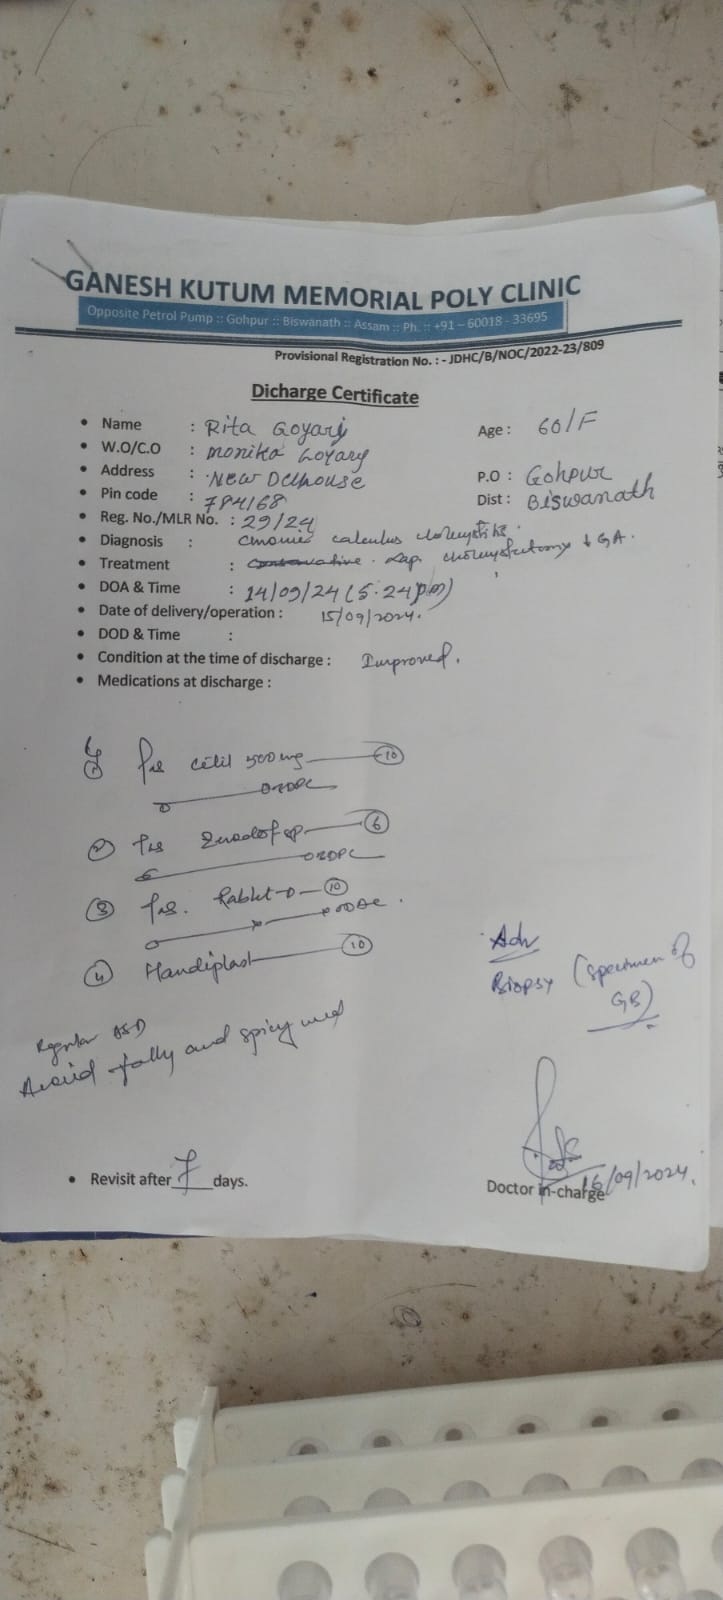 GANESH KUTUM MEMORIAL POLY CLINIC
Opposite Petrol Pump :: Gohpur :: Biswanath :: Assam :: Ph. :: +91 – 60018 - 33695
Provisional Registration No. : - JDHC/B/NOC/2022-23/809
Dicharge Certificate
• Name : Rita Goyary Age : 60/F
• W.O/C.O : Monika Goyary
• Address : New Delhouse P.O : Gohpur
• Pin code : 784168 Dist : Biswanath
• Reg. No./MLR No. : 29/24
• Diagnosis : chronic calculus
• Treatment : Lap. GA.
• DOA & Time : 14/09/24 (5:24 pm)
• Date of delivery/operation : 15/09/2024.
• DOD & Time :
• Condition at the time of discharge : Improved.
• Medications at discharge :
500 mg 10
② Zerodol sp 6
③ Rablet-D 10
④ Handiplast 10
Adv
Biopsy (specimen of GB)
Regular
Avoid and spicy
• Revisit after 7 days.
Doctor in-charge 16/09/2024.